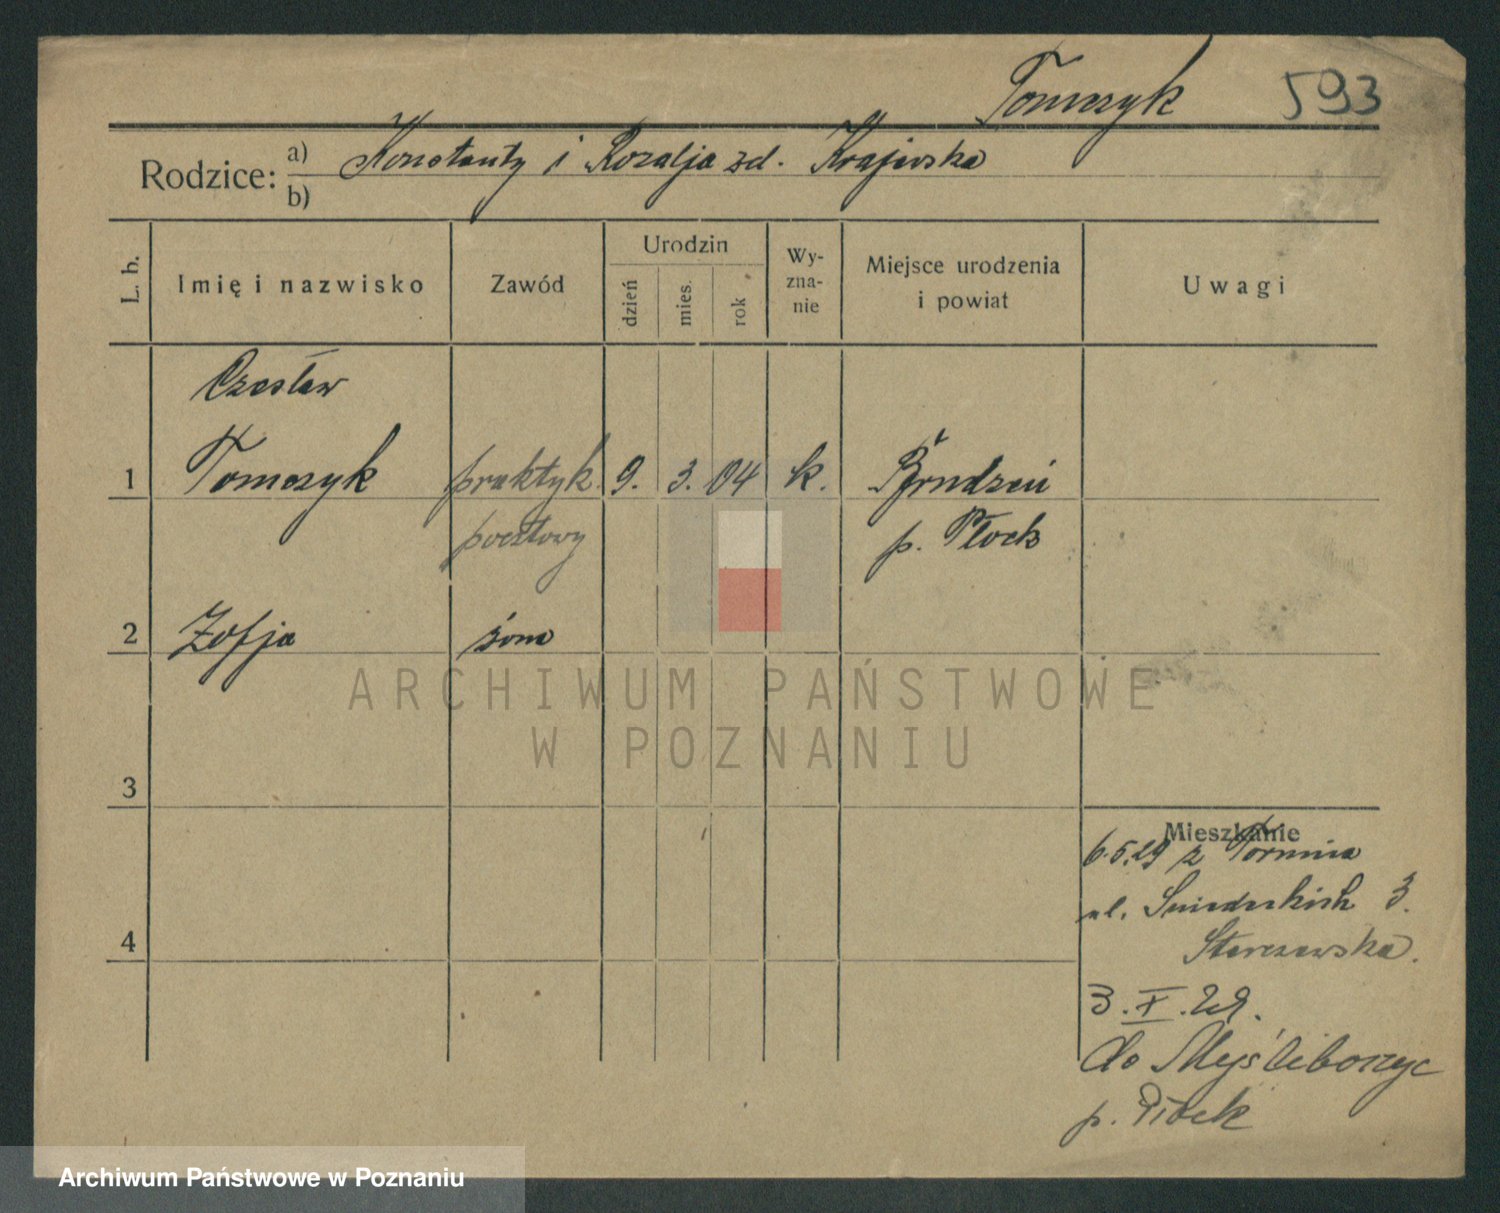 Tomczyk 593
Rodzice: a) Konstanty i Rozalja zd. Krajewska
b)
L. b. Imię i nazwisko Zawód Urodzin dzień mies. rok Wyznanie Miejsce urodzenia i powiat Uwagi
Czesław
1 Tomczyk praktyk. 9. 3. 04 k. Brudzeń
pocztowy p. Płock
2 Zofja żona
ARCHIWUM PAŃSTWOWE
W POZNANIU
3
Mieszkanie
6.5.29 z Torunia
ul. Śniadeckich 3.
4
3.X.29.
do Myśliborzyc
p. Płock
Archiwum Państwowe w Poznaniu